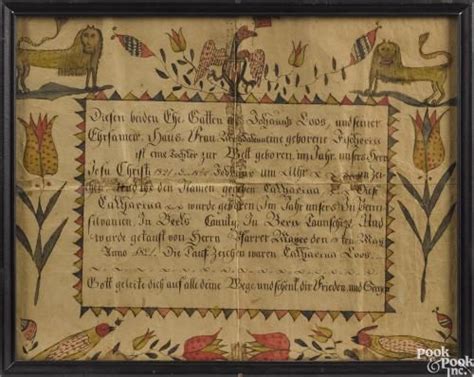 Diesen beiden Ehe Gatten als Johannes Loos, und seiner
Ehrsamen Haus Frau eine geborene Fischerin
ist eine Tochter zur Welt geboren im Jahr unsers Herr
Jesu Christi 1821 um Uhr Zei
chen Und ihr den Namen gegeben Catharina Diese
Catharina wurde geboren Im Jahr unsers In Penn
silvanien In Berks Caunty In Bern Taunschip Und
wurde getauft von Herrn Pfarrer den ten May
Anno 1821 Die Tauf Zeichen waren Catharina Loos
Gott geleite dich auf alle deine Wege und schenk dir Frieden und Segen
Pook & Pook Inc.